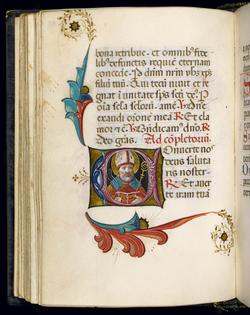 bona retribue. et omnibus fide
libus defunctis requiē eternam
concede. P dnm nrm yhs xps
filiū tuū. Qui tecū uiuit et re
gnat ī unitate spūs scī ds. P
oīa sclā sclorū. amē. V Dne
exaudi oronē meā R Et cla
mor. V. Bndicam9 dnō. R
Deo grās. Ad cōpletoriū.
Onuerte nos
deus saluta
ris noster.
R Et auer
te iram tuā